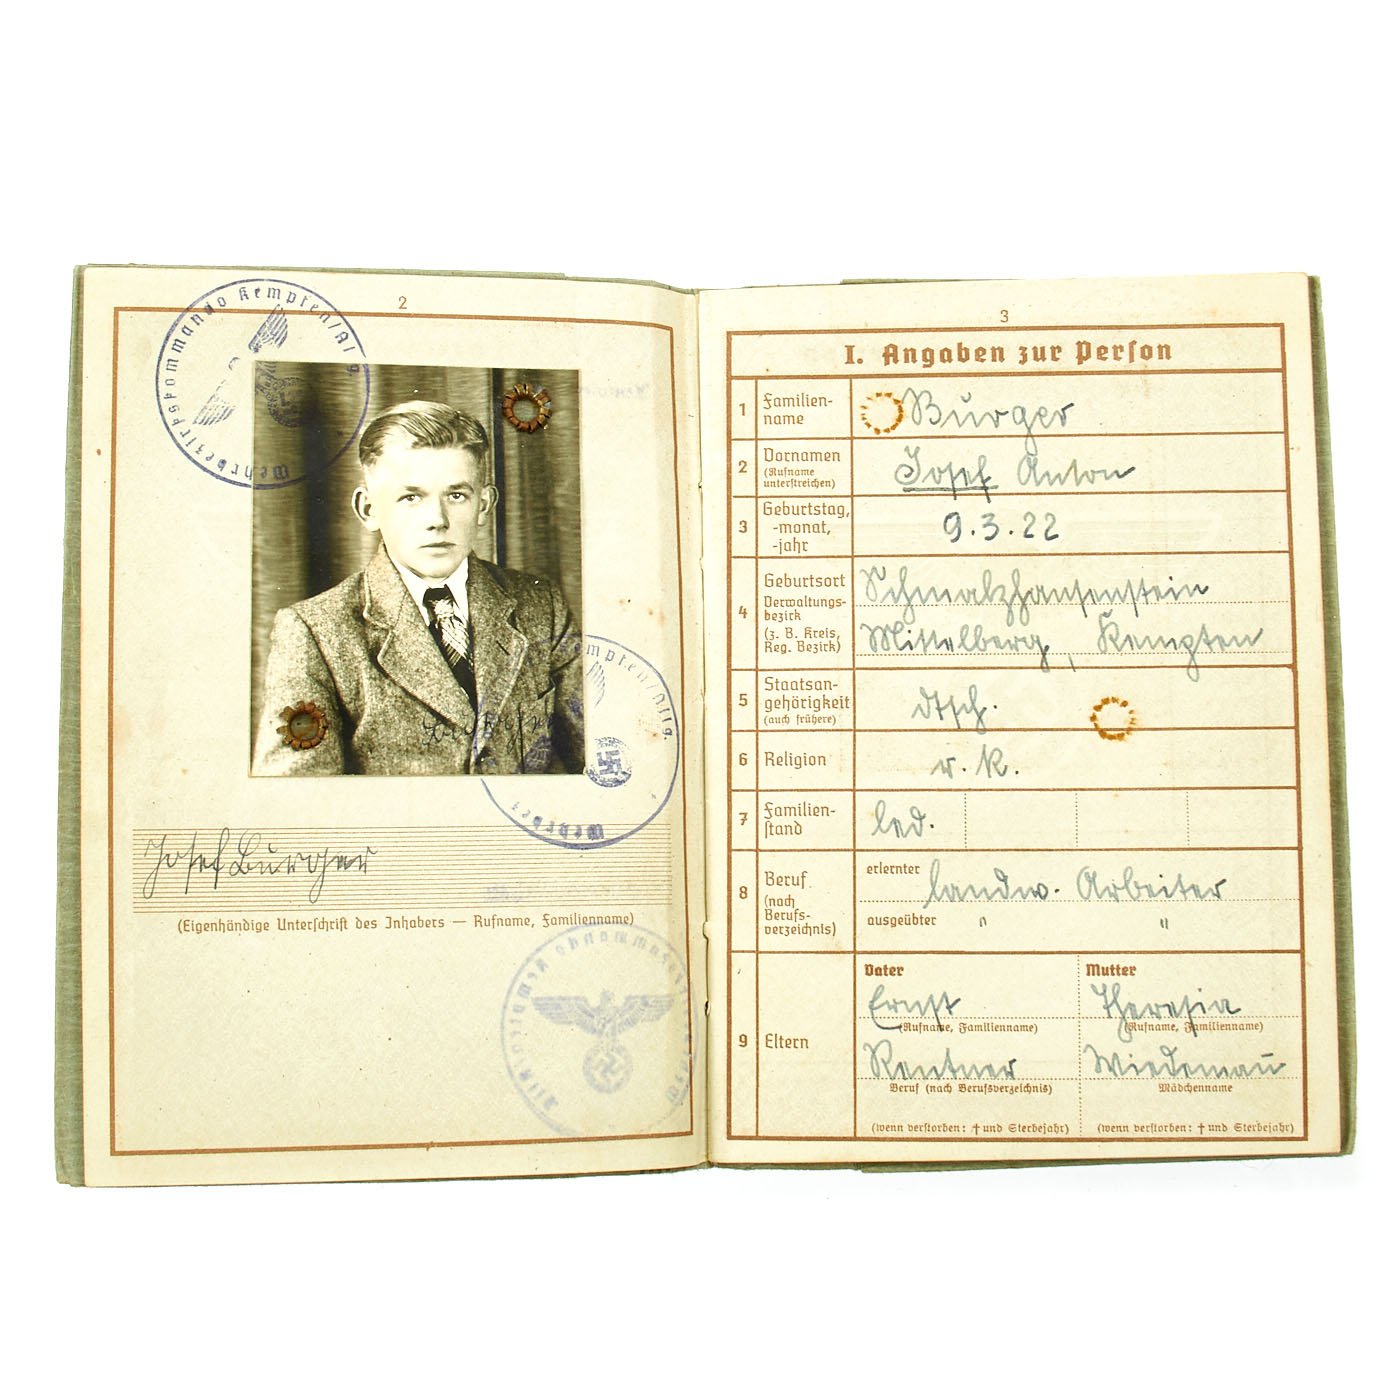 2
Wehrbezirkskommando Kempten/Allg.
Kempten/Allg.
Wehrbez
Josef Burger
(Eigenhändige Unterschrift des Inhabers — Rufname, Familienname)
3
I. Angaben zur Person
1 Familien-
name
Burger
2 Vornamen
(Rufname
unterstreichen)
Josef Anton
3 Geburtstag,
-monat,
-jahr
9.3.22
4 Geburtsort
Verwaltungs-
bezirk
(z. B. Kreis,
Reg. Bezirk)
Mittelberg, Kempten
5 Staatsan-
gehörigkeit
(auch frühere)
dtsch.
6 Religion
r. k.
7 Familien-
stand
led.
8 Beruf
(nach
Berufs-
verzeichnis)
erlernter landw. Arbeiter
ausgeübter " "
9 Eltern
Vater Mutter
Ernst Theresia
(Rufname, Familienname) (Rufname, Familienname)
Rentner Wiedemañ
Beruf (nach Berufsverzeichnis) Mädchenname
(wenn verstorben: † und Sterbejahr) (wenn verstorben: † und Sterbejahr)